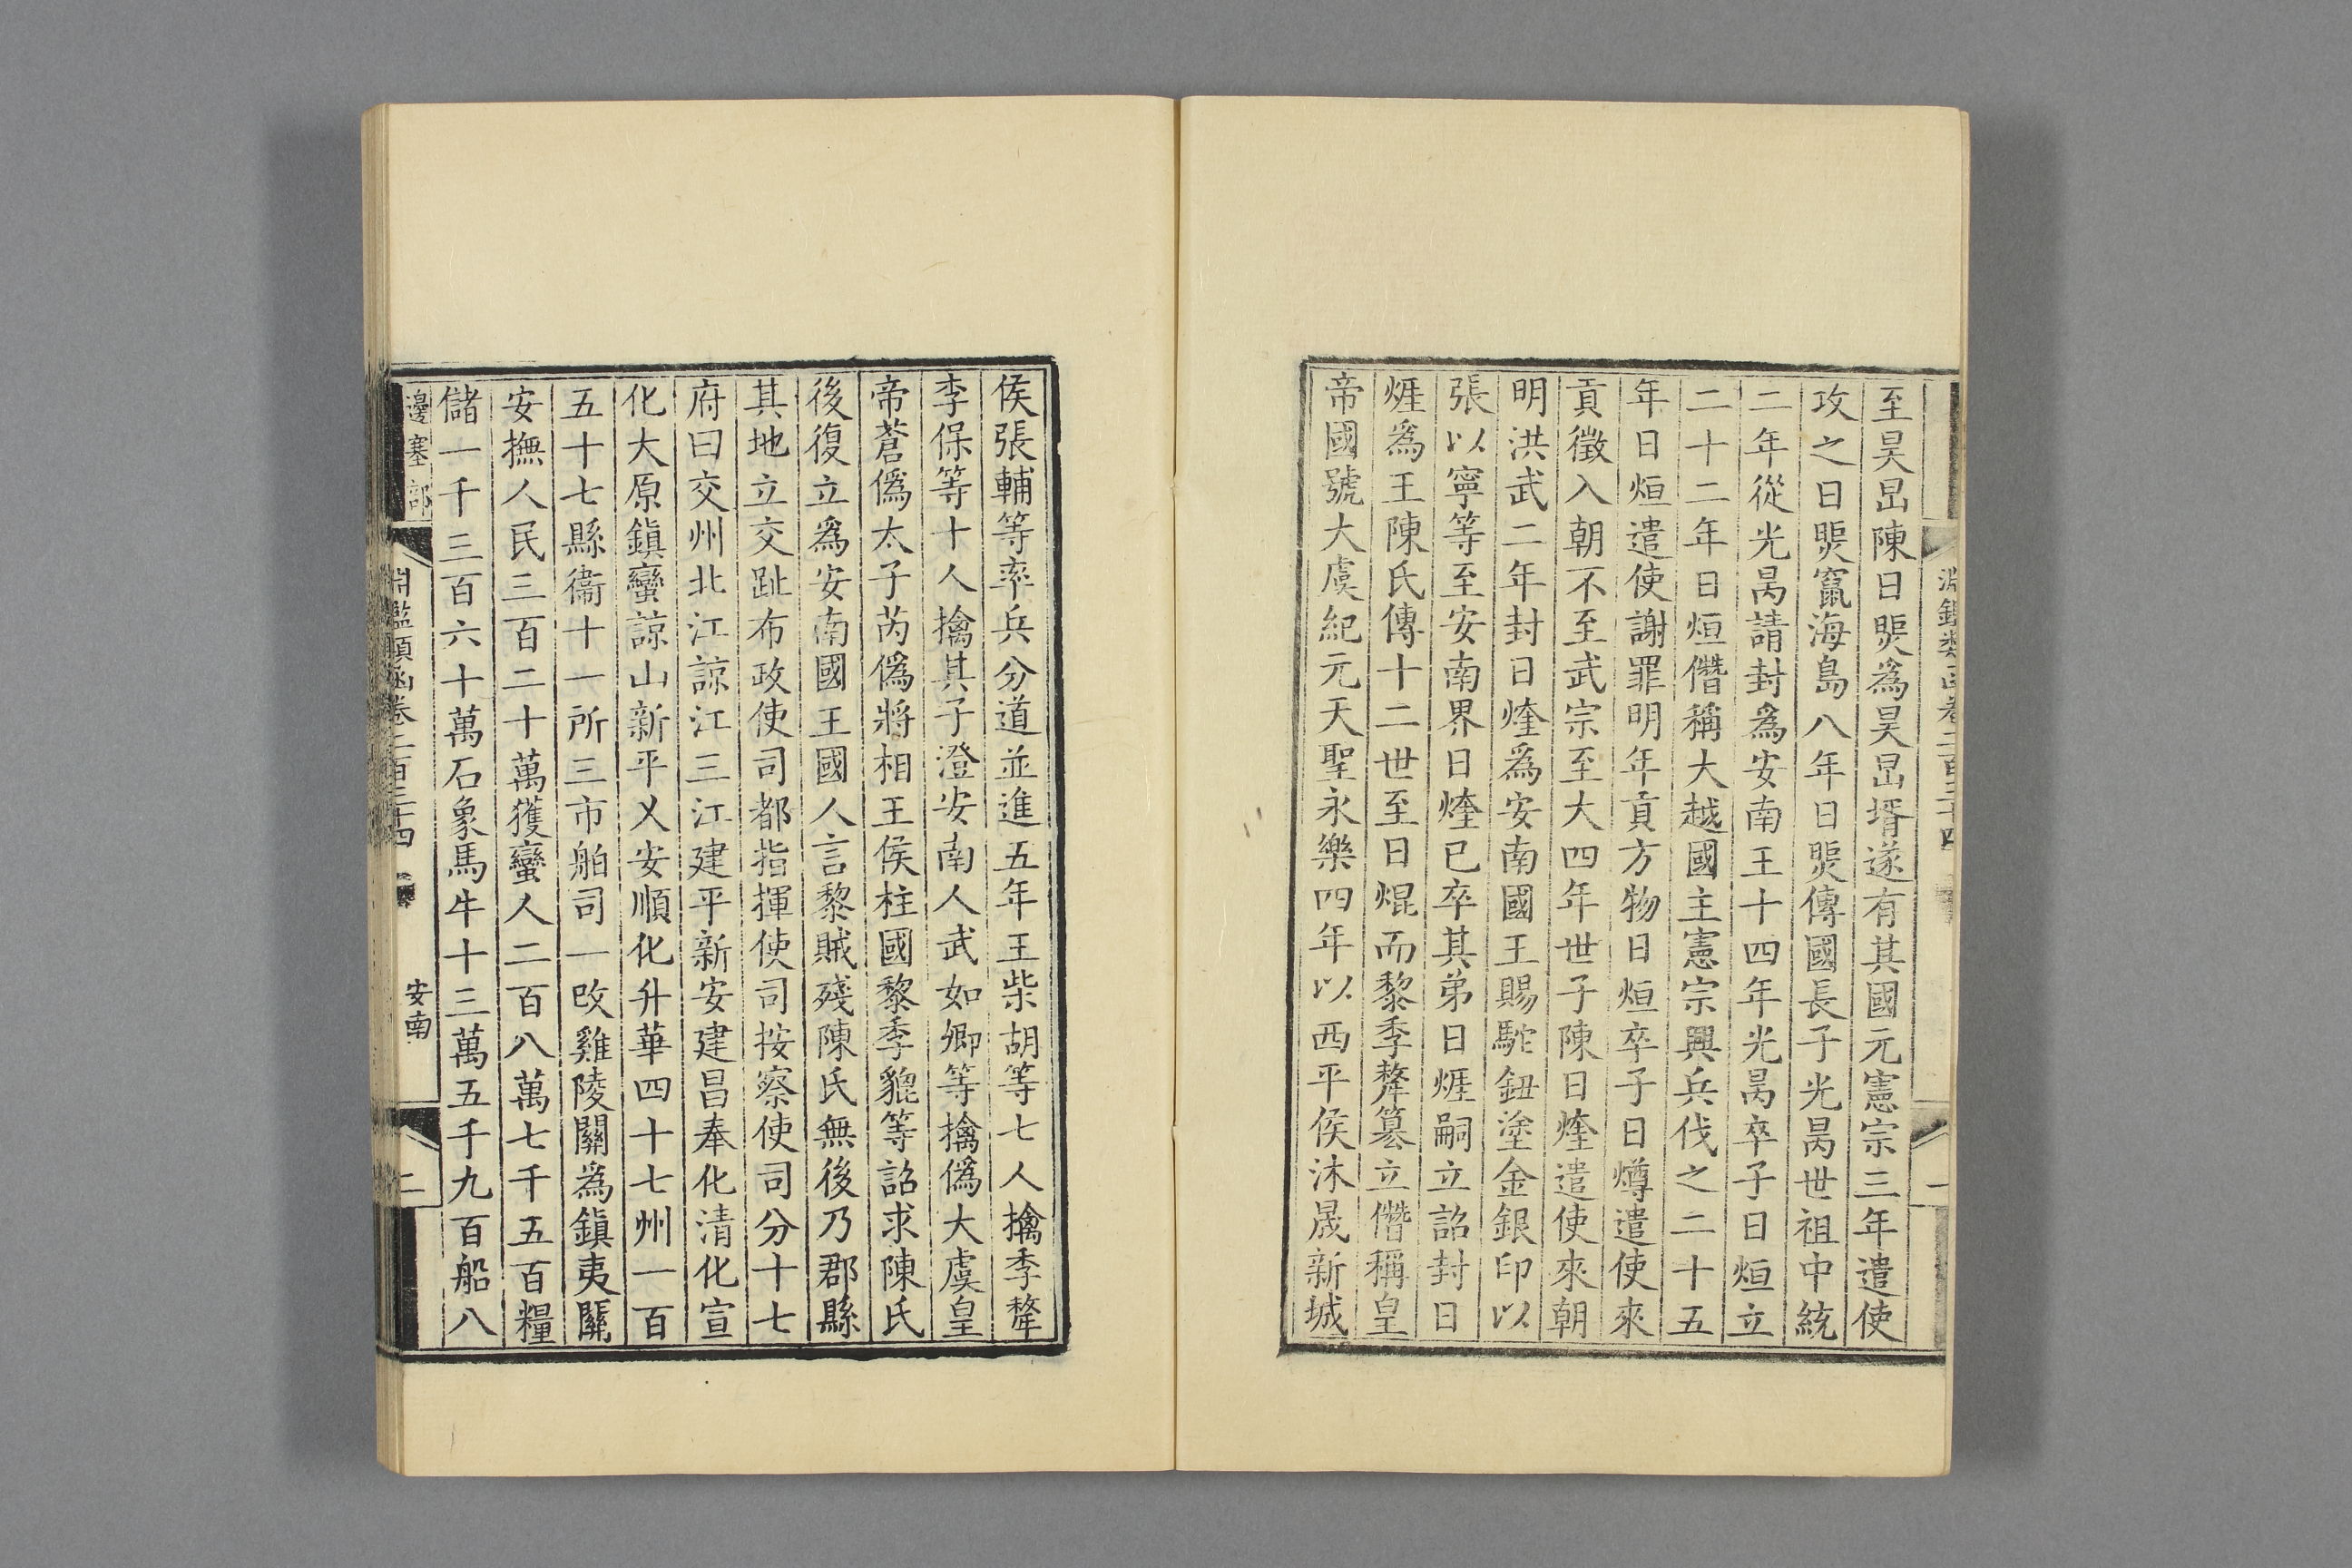 至昊旵陳日煚爲昊旵壻遂有其國元憲宗三年遣使
攻之日煚竄海島八年日煚傳國長子光昺世祖中統
二年從光昺請封爲安南王十四年光昺卒子日烜立
二十二年日烜僭稱大越國主憲宗興兵伐之二十五
年日烜遣使謝罪明年貢方物日烜卒子日燇遣使來
貢徵入朝不至武宗至大四年世子陳日㷃遣使來朝
明洪武二年封日煃爲安南國王賜駝鈕塗金銀印以
張以寧等至安南界日煃已卒其弟日熞嗣立詔封日
熞爲王陳氏傳十二世至日焜而黎季犛篡立僭稱皇
帝國號大虞紀元天聖永樂四年以西平侯沐晟新城
侯張輔等率兵分道並進五年王柴胡等七人擒季犛
李保等十人擒其子澄安南人武如卿等擒僞大虞皇
帝蒼僞太子芮僞將相王侯柱國黎季貔等詔求陳氏
後復立爲安南國王國人言黎賊殘陳氏無後乃郡縣
其地立交趾布政使司都指揮使司按察使司分十七
府曰交州北江諒江三江建平新安建昌奉化清化宣
化大原鎮蠻諒山新平乂安順化升華四十七州一百
五十七縣衞十一所三市舶司一改雞陵關爲鎮夷關
安撫人民三百二十萬獲蠻人二百八萬七千五百糧
儲一千三百六十萬石象馬牛十三萬五千九百船八
邊塞部
淵鑑類函卷二百三十四
安南
二